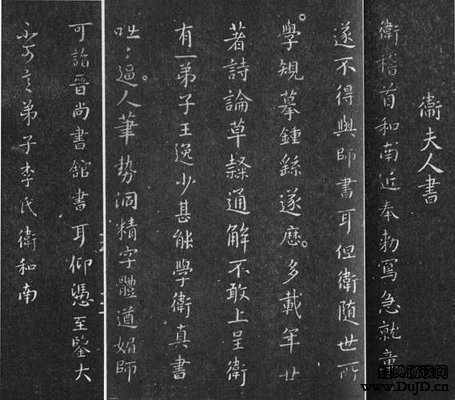 衛夫人書
衛稽首和南近奉勅寫急就章
遂不得與師書耳但衛隨世所
學規摹鍾繇遂歷多載年廿
著詩論草隸通解不敢上呈衛
有一弟子王逸少甚能學衛真書
咄咄逼人筆勢洞精字體遒媚師
可詣晉尚書館書耳仰憑至鑒大
不可言弟子李氏衛和南
www.DujD.cn